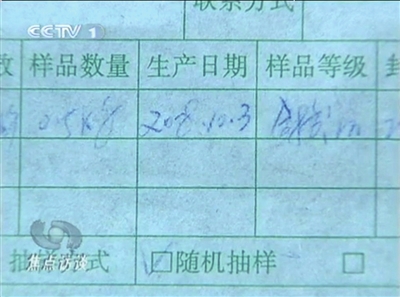 CCTV 1
联系方式
数 样品数量 生产日期 样品等级 封
0.5kg 2008.10.3
抽样方式 □随机抽样 □
焦点访谈